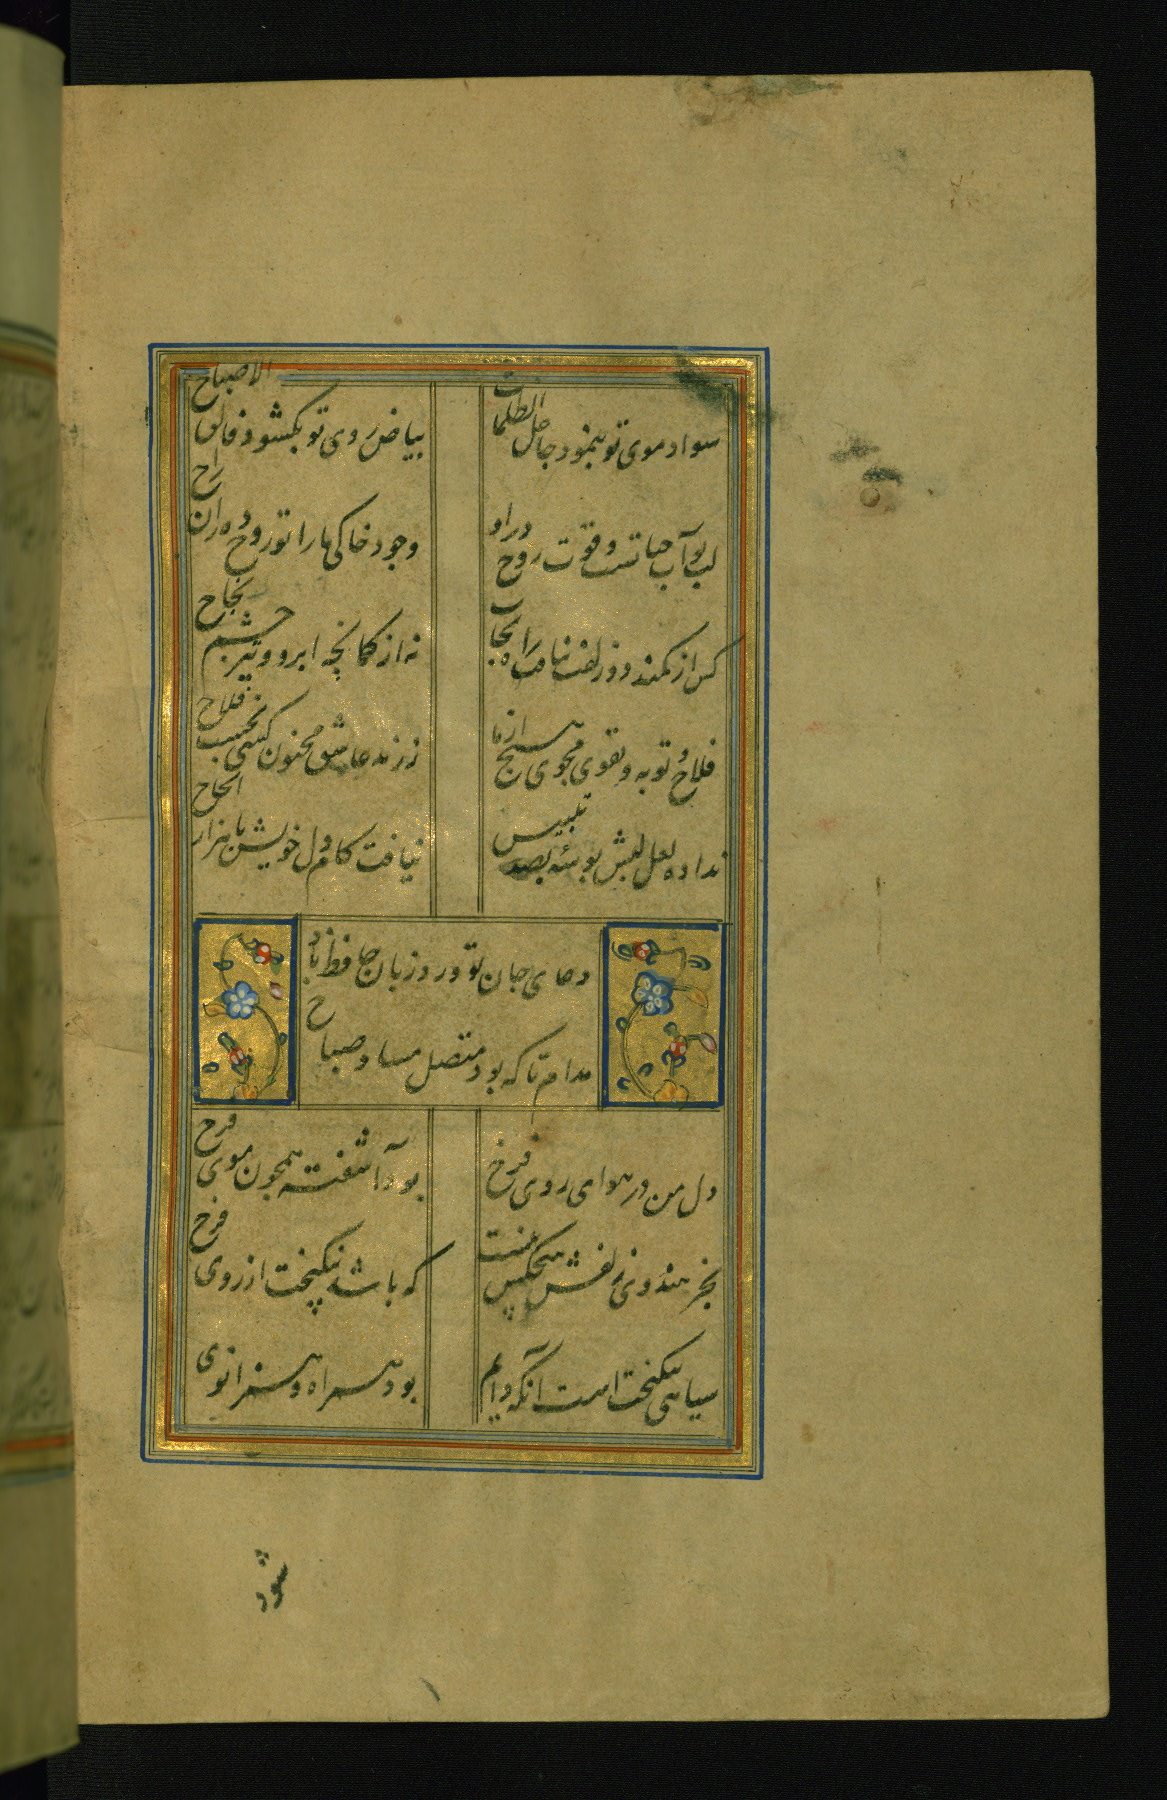 سواد موی تو بنمود جاعل الظلمات
بیاض روی تو بکشود فالق الاصباح
لب تو آب حیاتست و قوت روح
وجود خاکی ما را تو روح ده
کس از کمند دو زلفت نیافت راه نجات
نه از کمانچه ابرو و تیر چشم نجاح
فلاح و توبه و تقوی مجوی هیچ از ما
ز رند عاشق مجنون کسی نجست فلاح
نداده لعل لبش بوسه بصد تلبیس
نیافت کام دل خویش با هزار الحاح
دعای جان تو ورد زبان حافظ باد
مدام تا که بود متصل مسا و صباح
دل من در هوای روی فرخ
بود آشفته همچون موی فرخ
بجز هندوی زلفش هیچکس نیست
که باشد نیکبخت از روی فرخ
سیاهی نیکبخت است آنکه دایم
بود همراه و همزانوی
شود